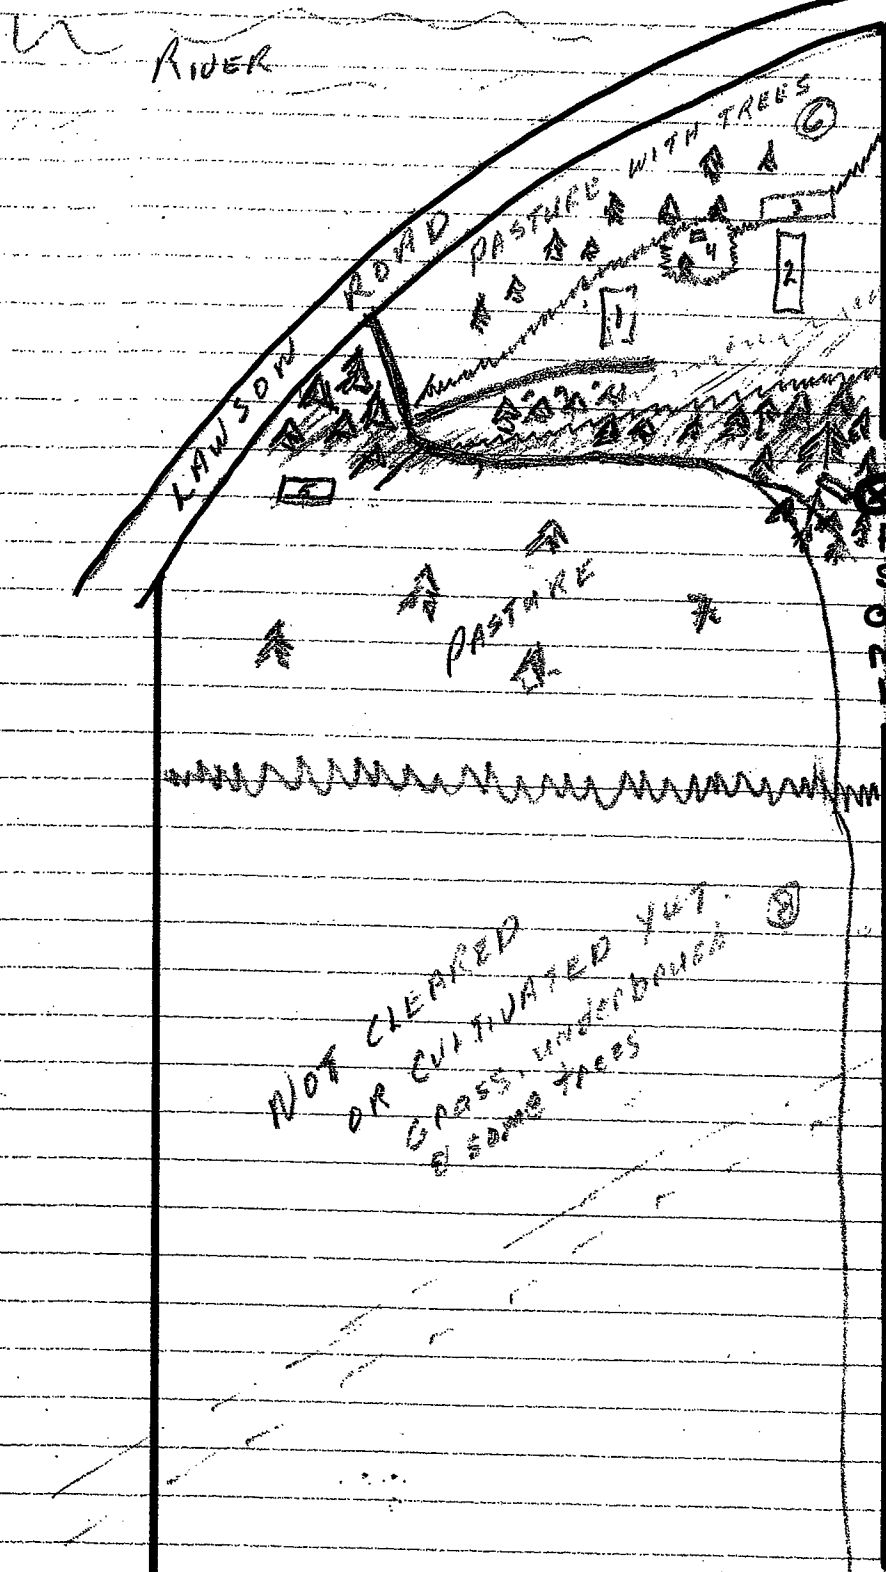 RIVER
LAWSON ROAD
PASTURE WITH TREES
6
3
4
2
1
5
PASTURE
8
NOT CLEARED
OR CULTIVATED YUT.
GRASS, UNDERBRUSH
& SOME TREES